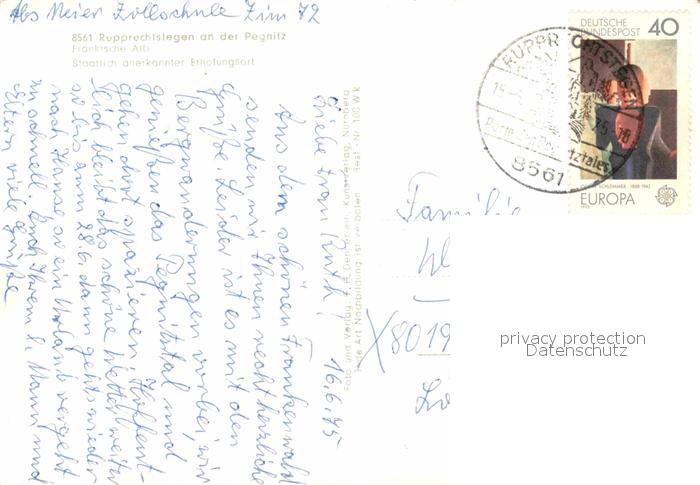 Abs Meier Zollschule Zim 72
8561 Rupprechtstegen an der Pegnitz
Fränkische Alb
Staatlich anerkannter Erholungsort
16.6.75
Liebe Frau Ruth!
Aus dem schönen Frankenwald
senden wir Ihnen recht herzliche
Grüße. Leider ist es mit den
Bergwanderungen vorbei, wir
genießen das Pegnitztal und
gehen dort spazieren. Hoffent-
lich bleibt das schöne Wetter weiter
so bis zum 28.6. dann gehts wieder
nach Hause so ein Urlaub vergeht
zu schnell. Auch Ihrem l. Mann und
Eltern viele Grüße
Foto und Verlag Kunstverlag, Nürnberg
Jede Art Nachbildung ist verboten Best.-Nr. 100 Wk
Familie
8019
DEUTSCHE
BUNDESPOST 40
OSKAR SCHLEMMER 1888-1943
EUROPA
1975
RUPPRECHTSTEGEN
Perle des Pegnitztales
8561
privacy protection
Datenschutz